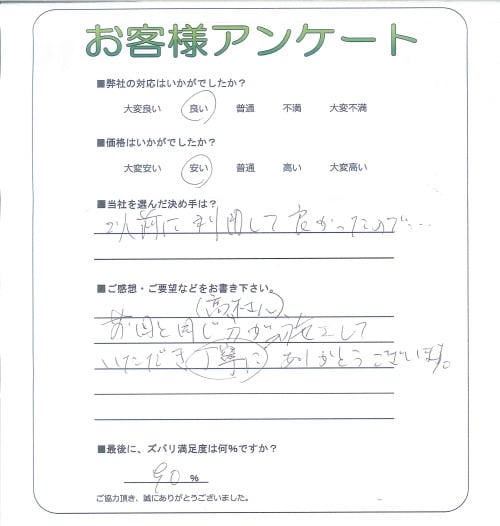 お客様アンケート
■弊社の対応はいかがでしたか？
大変良い 良い 普通 不満 大変不満
■価格はいかがでしたか？
大変安い 安い 普通 高い 大変高い
■当社を選んだ決め手は？
以前に利用して良かったので…
■ご感想・ご要望などをお書き下さい。
前回と同じ方が
して
いただき丁寧に ありがとうございます。
■最後に、ズバリ満足度は何％ですか？
90 ％
ご協力頂き、誠にありがとうございました。